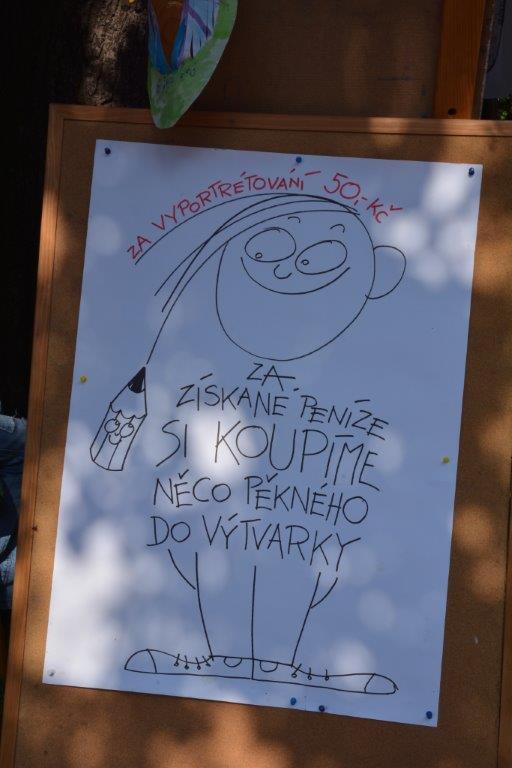 ZA VYPORTRÉTOVÁNÍ 50,- KČ
ZA
ZÍSKANÉ PENÍZE
SI KOUPÍME
NĚCO PĚKNÉHO
DO VÝTVARKY